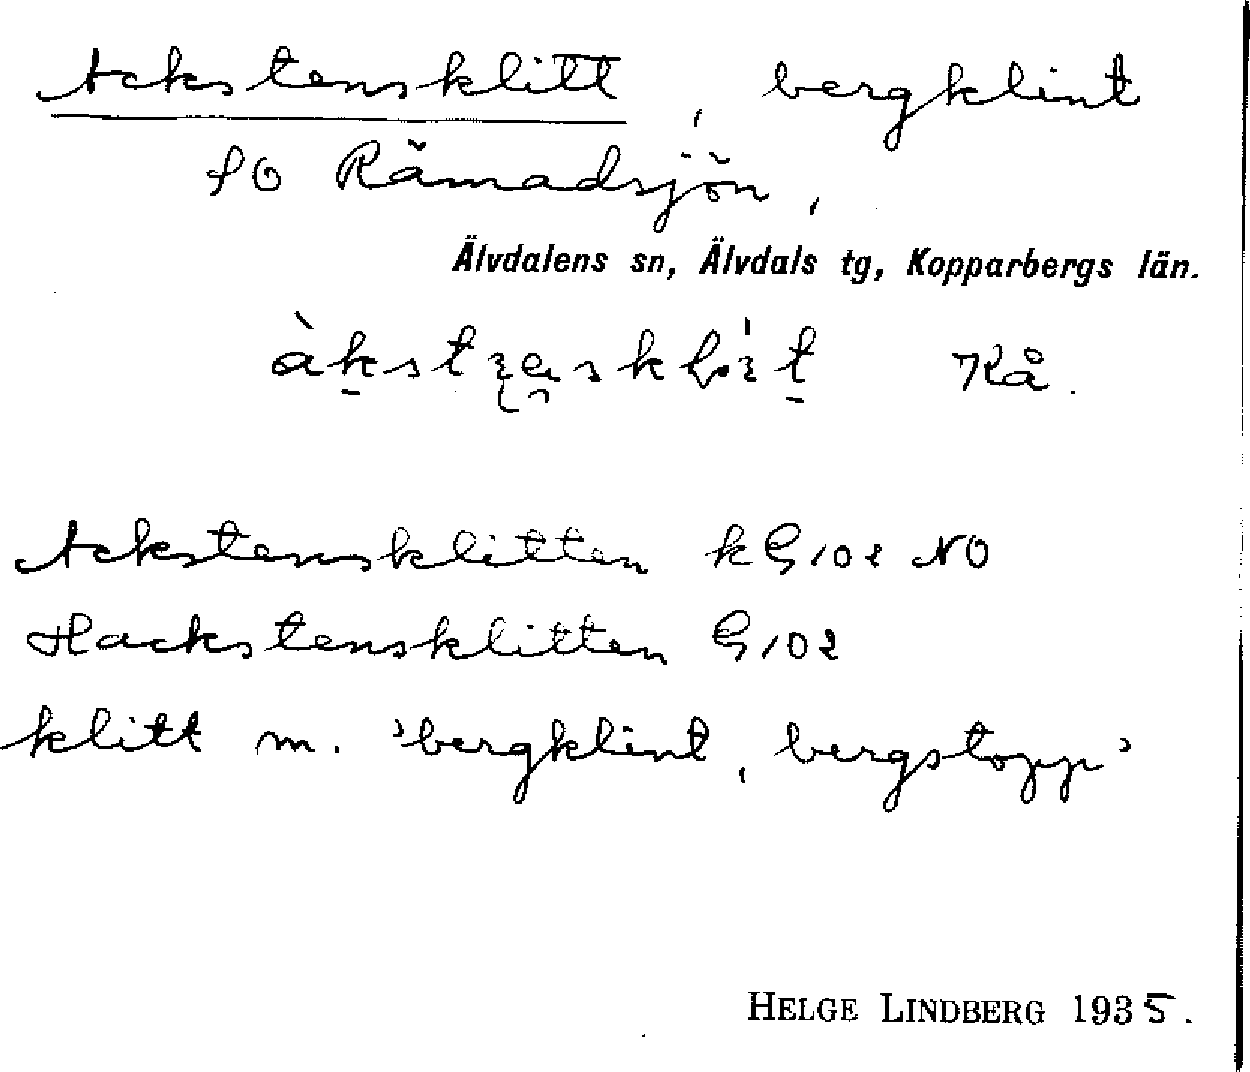 Ackstensklitt, bergklint
SO Råmadsjön,
Älvdalens sn, Älvdals tg, Kopparbergs län.
Rå.
Ackstensklitten kG102 NO
Hackstensklitten G102
klitt m. 'bergklint, bergstopp'
HELGE LINDBERG 1935.